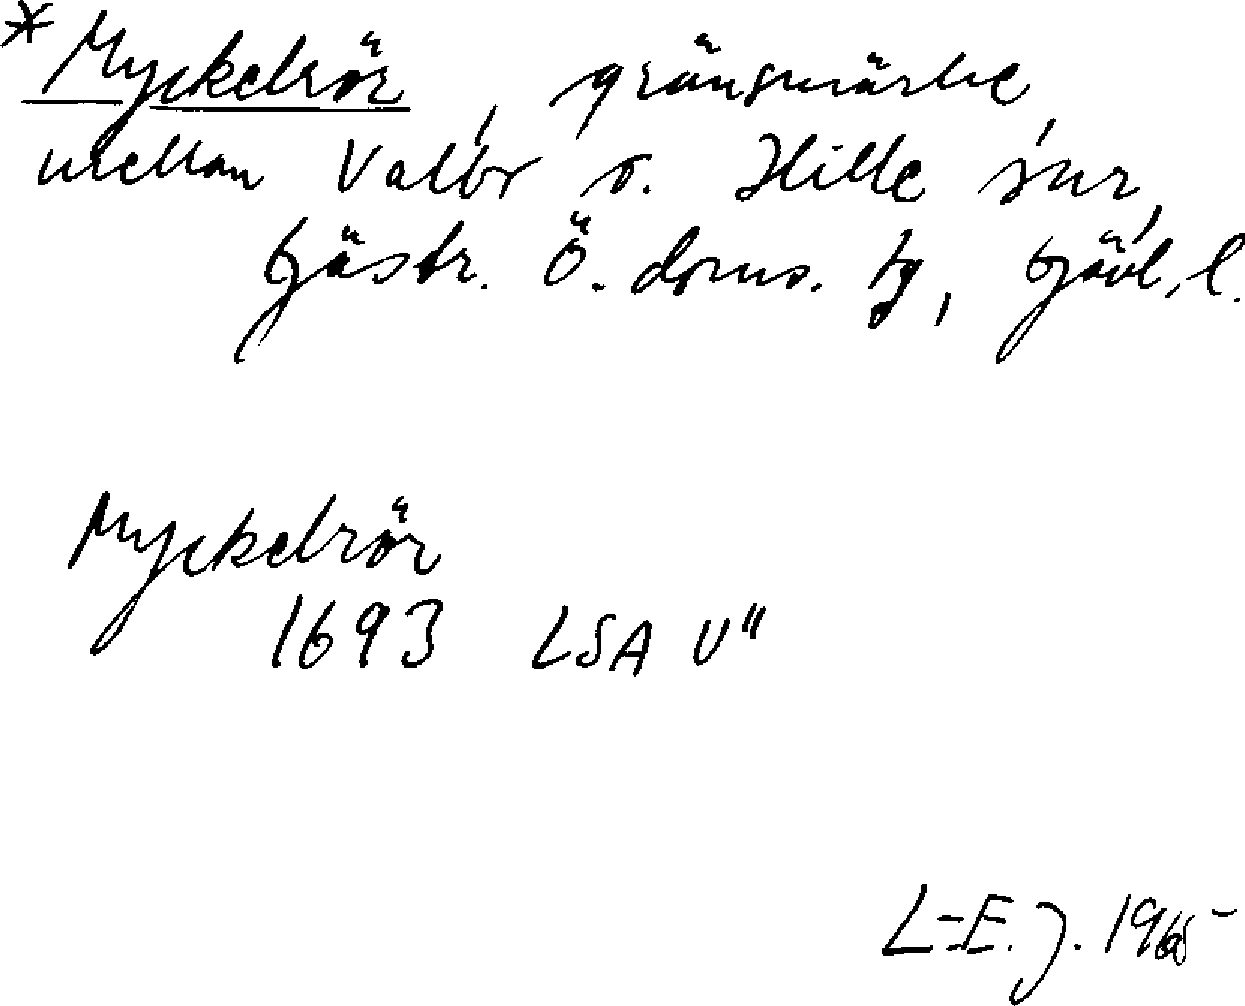 *Myckelrör, gränsmärke,
mellan Valbo o. Hille snr,
Gästr. Ö. doms. tg, Gävl. l.
Myckelrör
1693 LSA V"
L-E. J. 1965